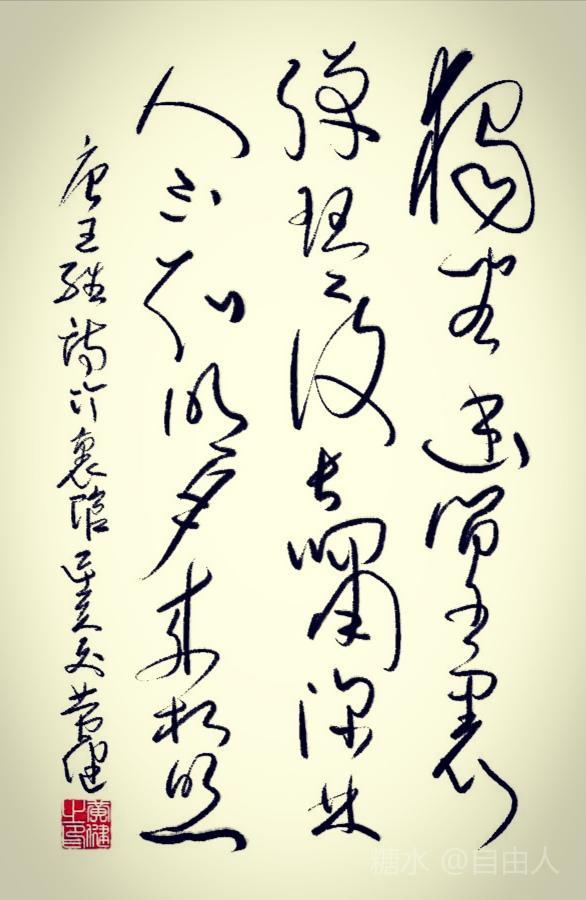 獨坐幽篁裏
彈琴復長嘯深林
人不知明月來相照
唐王維詩竹裏館
糖水 @自由人